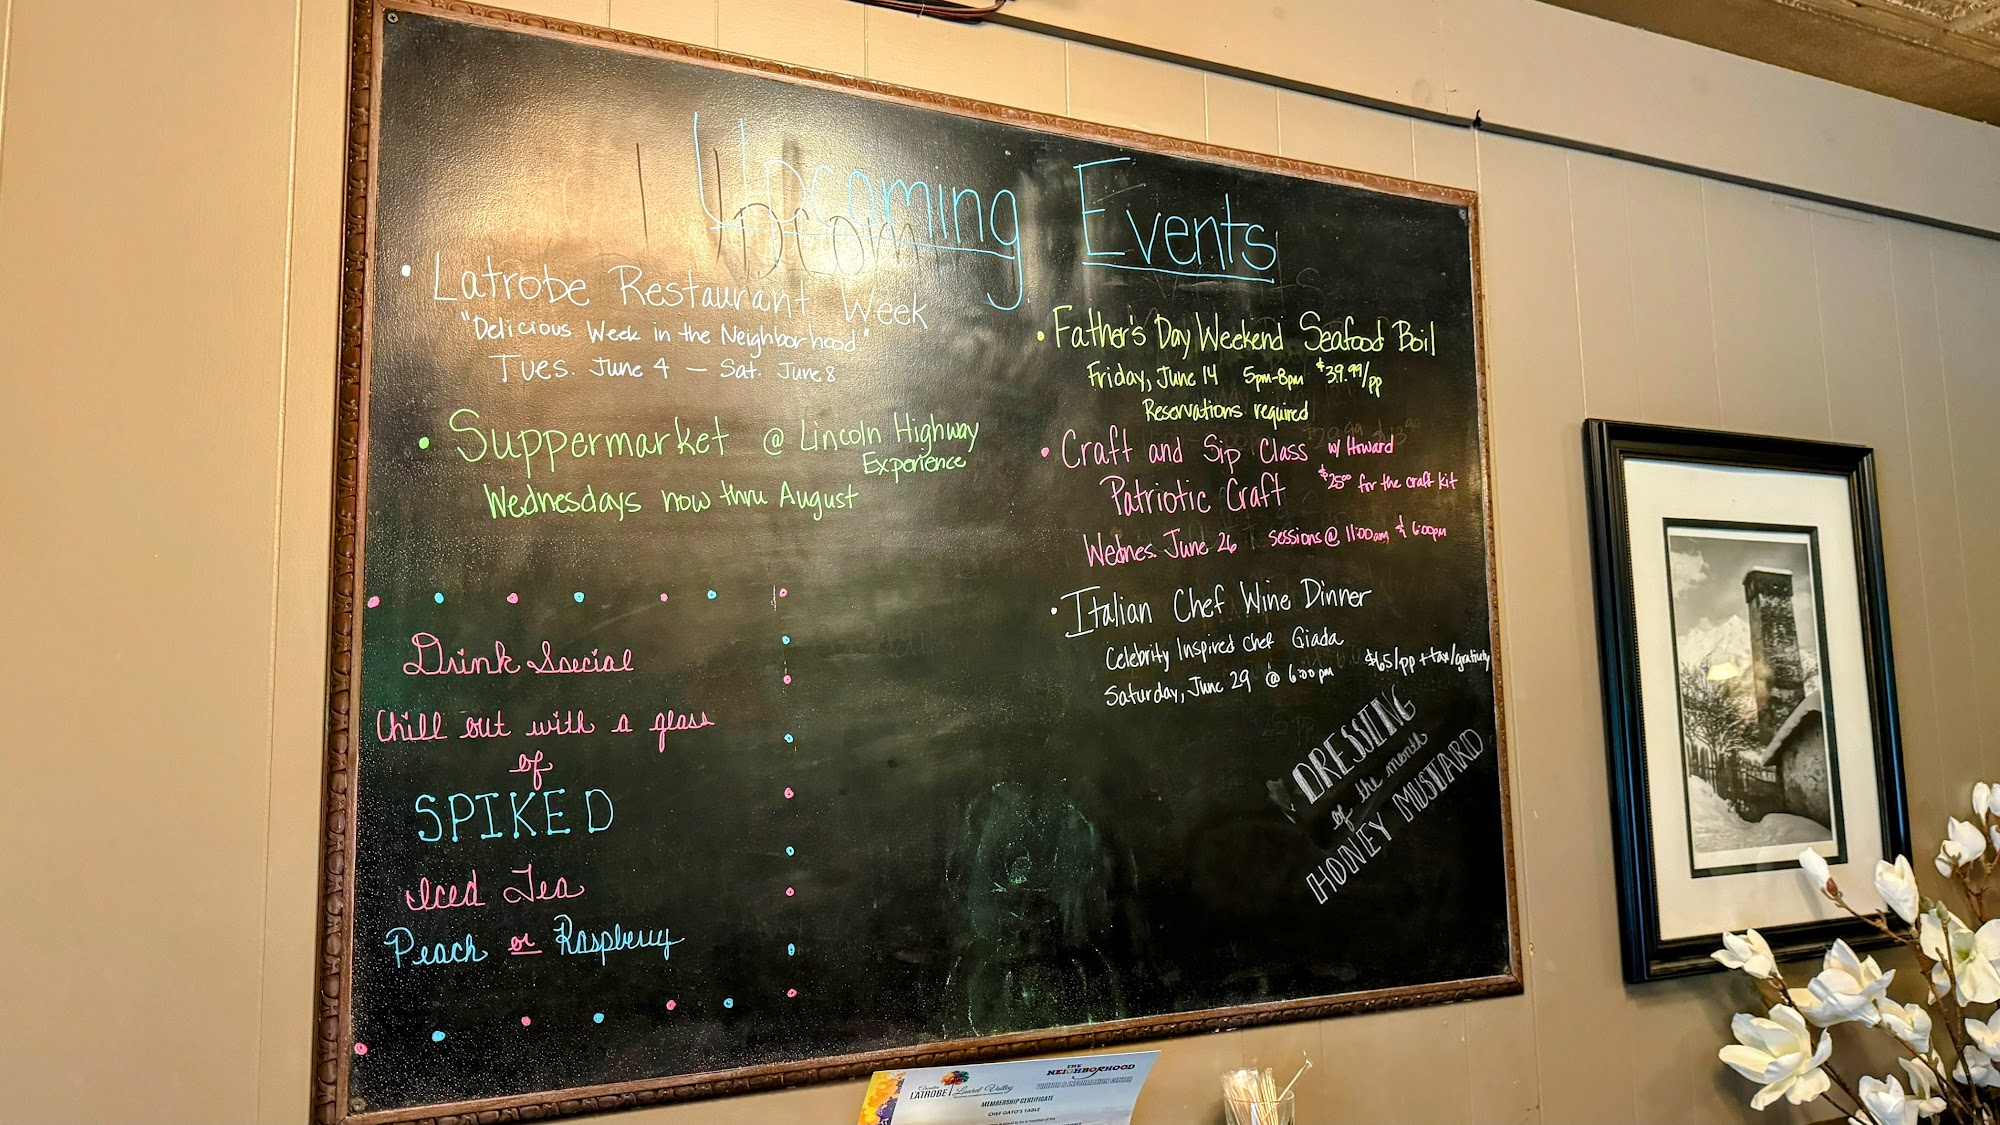 Upcoming Events
• Latrobe Restaurant Week
"Delicious Week in the Neighborhood"
Tues. June 4 — Sat. June 8
• Suppermarket @ Lincoln Highway
Experience
Wednesdays now thru August
Drink Special
Chill out with a glass
of
SPIKED
Iced Tea
Peach or Raspberry
• Father's Day Weekend Seafood Boil
Friday, June 14 5pm-8pm $39.99/pp
Reservations required
• Craft and Sip Class w/ Howard
Patriotic Craft $25.00 for the craft kit
Wednes. June 26 sessions @ 11:00am & 6:00pm
• Italian Chef Wine Dinner
Celebrity Inspired Chef Giada
Saturday, June 29 @ 6:00pm $65/pp + tax/gratuity
DRESSING
of the month
HONEY MUSTARD
Greater
LATROBE Laurel Valley
THE
NEIGHBORHOOD
MEMBERSHIP CERTIFICATE
CHEF DATO'S TABLE